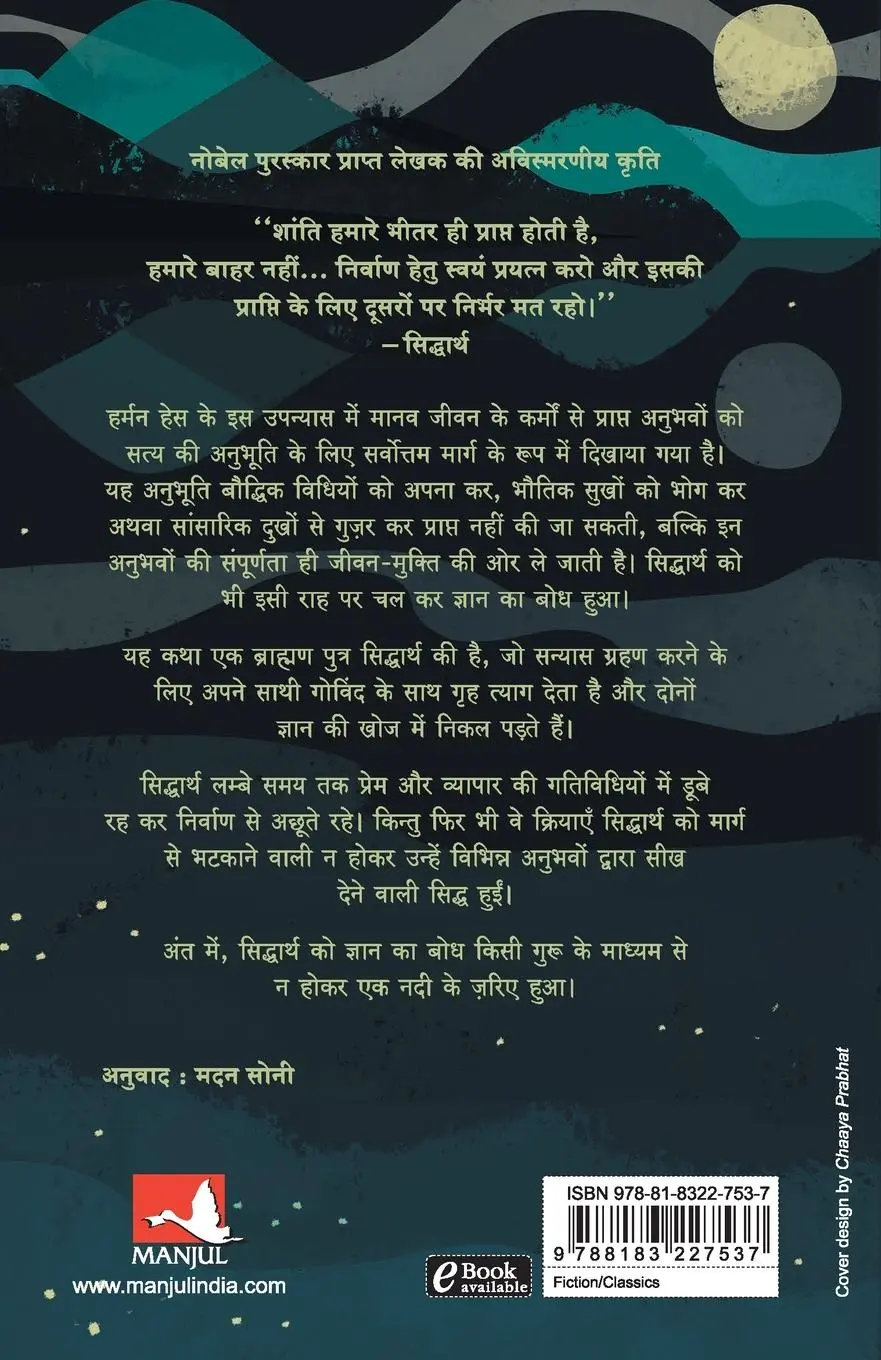 नोबेल पुरस्कार प्राप्त लेखक की अविस्मरणीय कृति
“शांति हमारे भीतर ही प्राप्त होती है,
हमारे बाहर नहीं... निर्वाण हेतु स्वयं प्रयत्न करो और इसकी
प्राप्ति के लिए दूसरों पर निर्भर मत रहो।”
– सिद्धार्थ
हर्मन हेस के इस उपन्यास में मानव जीवन के कर्मों से प्राप्त अनुभवों को
सत्य की अनुभूति के लिए सर्वोत्तम मार्ग के रूप में दिखाया गया है।
यह अनुभूति बौद्धिक विधियों को अपना कर, भौतिक सुखों को भोग कर
अथवा सांसारिक दुखों से गुज़र कर प्राप्त नहीं की जा सकती, बल्कि इन
अनुभवों की संपूर्णता ही जीवन-मुक्ति की ओर ले जाती है। सिद्धार्थ को
भी इसी राह पर चल कर ज्ञान का बोध हुआ।
यह कथा एक ब्राह्मण पुत्र सिद्धार्थ की है, जो सन्यास ग्रहण करने के
लिए अपने साथी गोविंद के साथ गृह त्याग देता है और दोनों
ज्ञान की खोज में निकल पड़ते हैं।
सिद्धार्थ लम्बे समय तक प्रेम और व्यापार की गतिविधियों में डूबे
रह कर निर्वाण से अछूते रहे। किन्तु फिर भी वे क्रियाएँ सिद्धार्थ को मार्ग
से भटकाने वाली न होकर उन्हें विभिन्न अनुभवों द्वारा सीख
देने वाली सिद्ध हुईं।
अंत में, सिद्धार्थ को ज्ञान का बोध किसी गुरू के माध्यम से
न होकर एक नदी के ज़रिए हुआ।
अनुवाद : मदन सोनी
MANJUL
www.manjulindia.com
e Book
available
ISBN 978-81-8322-753-7
9 788183 227537
Fiction/Classics
Cover design by Chaaya Prabhat